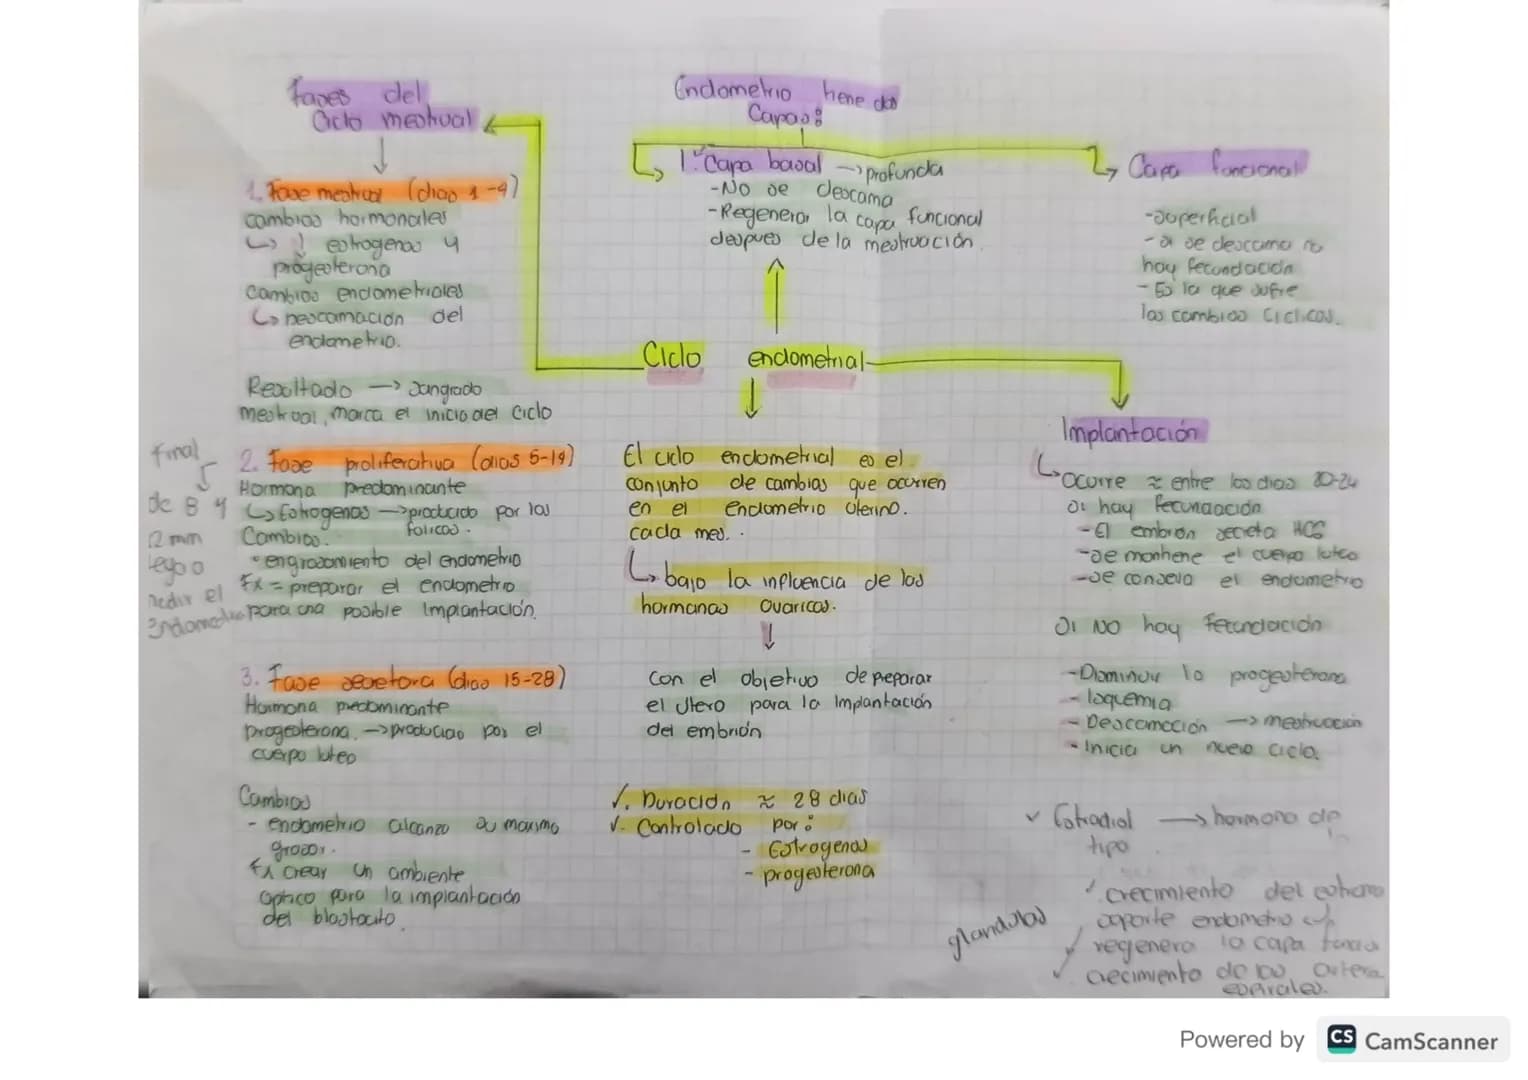 Fases del
Ciclo mestrual
1. Fase mestrual (dias 1-4)
cambios hormonales
↳ ↓ estrogenos y
progesterona
Cambios endometriales
↳ Descamación del
endometrio.
Resultado → Sangrado
mestrual, marca el inicio del ciclo
2. Fase proliferativa (dias 5-14)
Hormona predominante
↳ Estrogenos → producido por los
folicos.
Cambios.
• engrosamiento del endometrio
Fx = preparar el endometrio
para una posible Implantación.
Final
de 8 y
12 mm
medir el
Endometrio
3. Fase secretora (dias 15-28)
Hormona predominante
progesterona. → producido por el
cuerpo luteo
Cambios
- endometrio alcanza su maximo
grosor.
Fx crear un ambiente
optico para la implantación
del blastocito.
Endometrio tiene dos
Capas:
1. Capa basal → profunda
- No se descama
- Regenerar la capa funcional
despues de la mestruación.
Capa funcional
- Superficial
- si se descama no
hay fecundación
- Es la que sufre
los cambios ciclicos.
Ciclo endometrial
El ciclo endometrial es el
conjunto de cambios que ocurren
en el endometrio uterino.
cada mes.
↳ bajo la influencia de las
hormonas ovaricas.
↓
Con el objetivo de preparar
el utero para la Implantación
del embrión
✓. Duración ≈ 28 dias
✓. Controlado por:
- Estrogenos
- progesterona
Implantación
↳ Ocurre ≈ entre los dias 20-24
Si hay fecundación
- El embrión secreta HCG
- Se mantiene el cuerpo luteo
- Se conseva el endometrio
Si NO hay fecundación
- Disminuir la progesterona
- Isquemia
- Descamación → mestruación
- Inicia un nuevo ciclo.
✓ Estradiol → hormona de
tipo
✓ crecimiento del
soporte endometrio
glandulas
✓ regenera la capa
✓ crecimiento de las arteria
espirales.
Powered by CS CamScanner